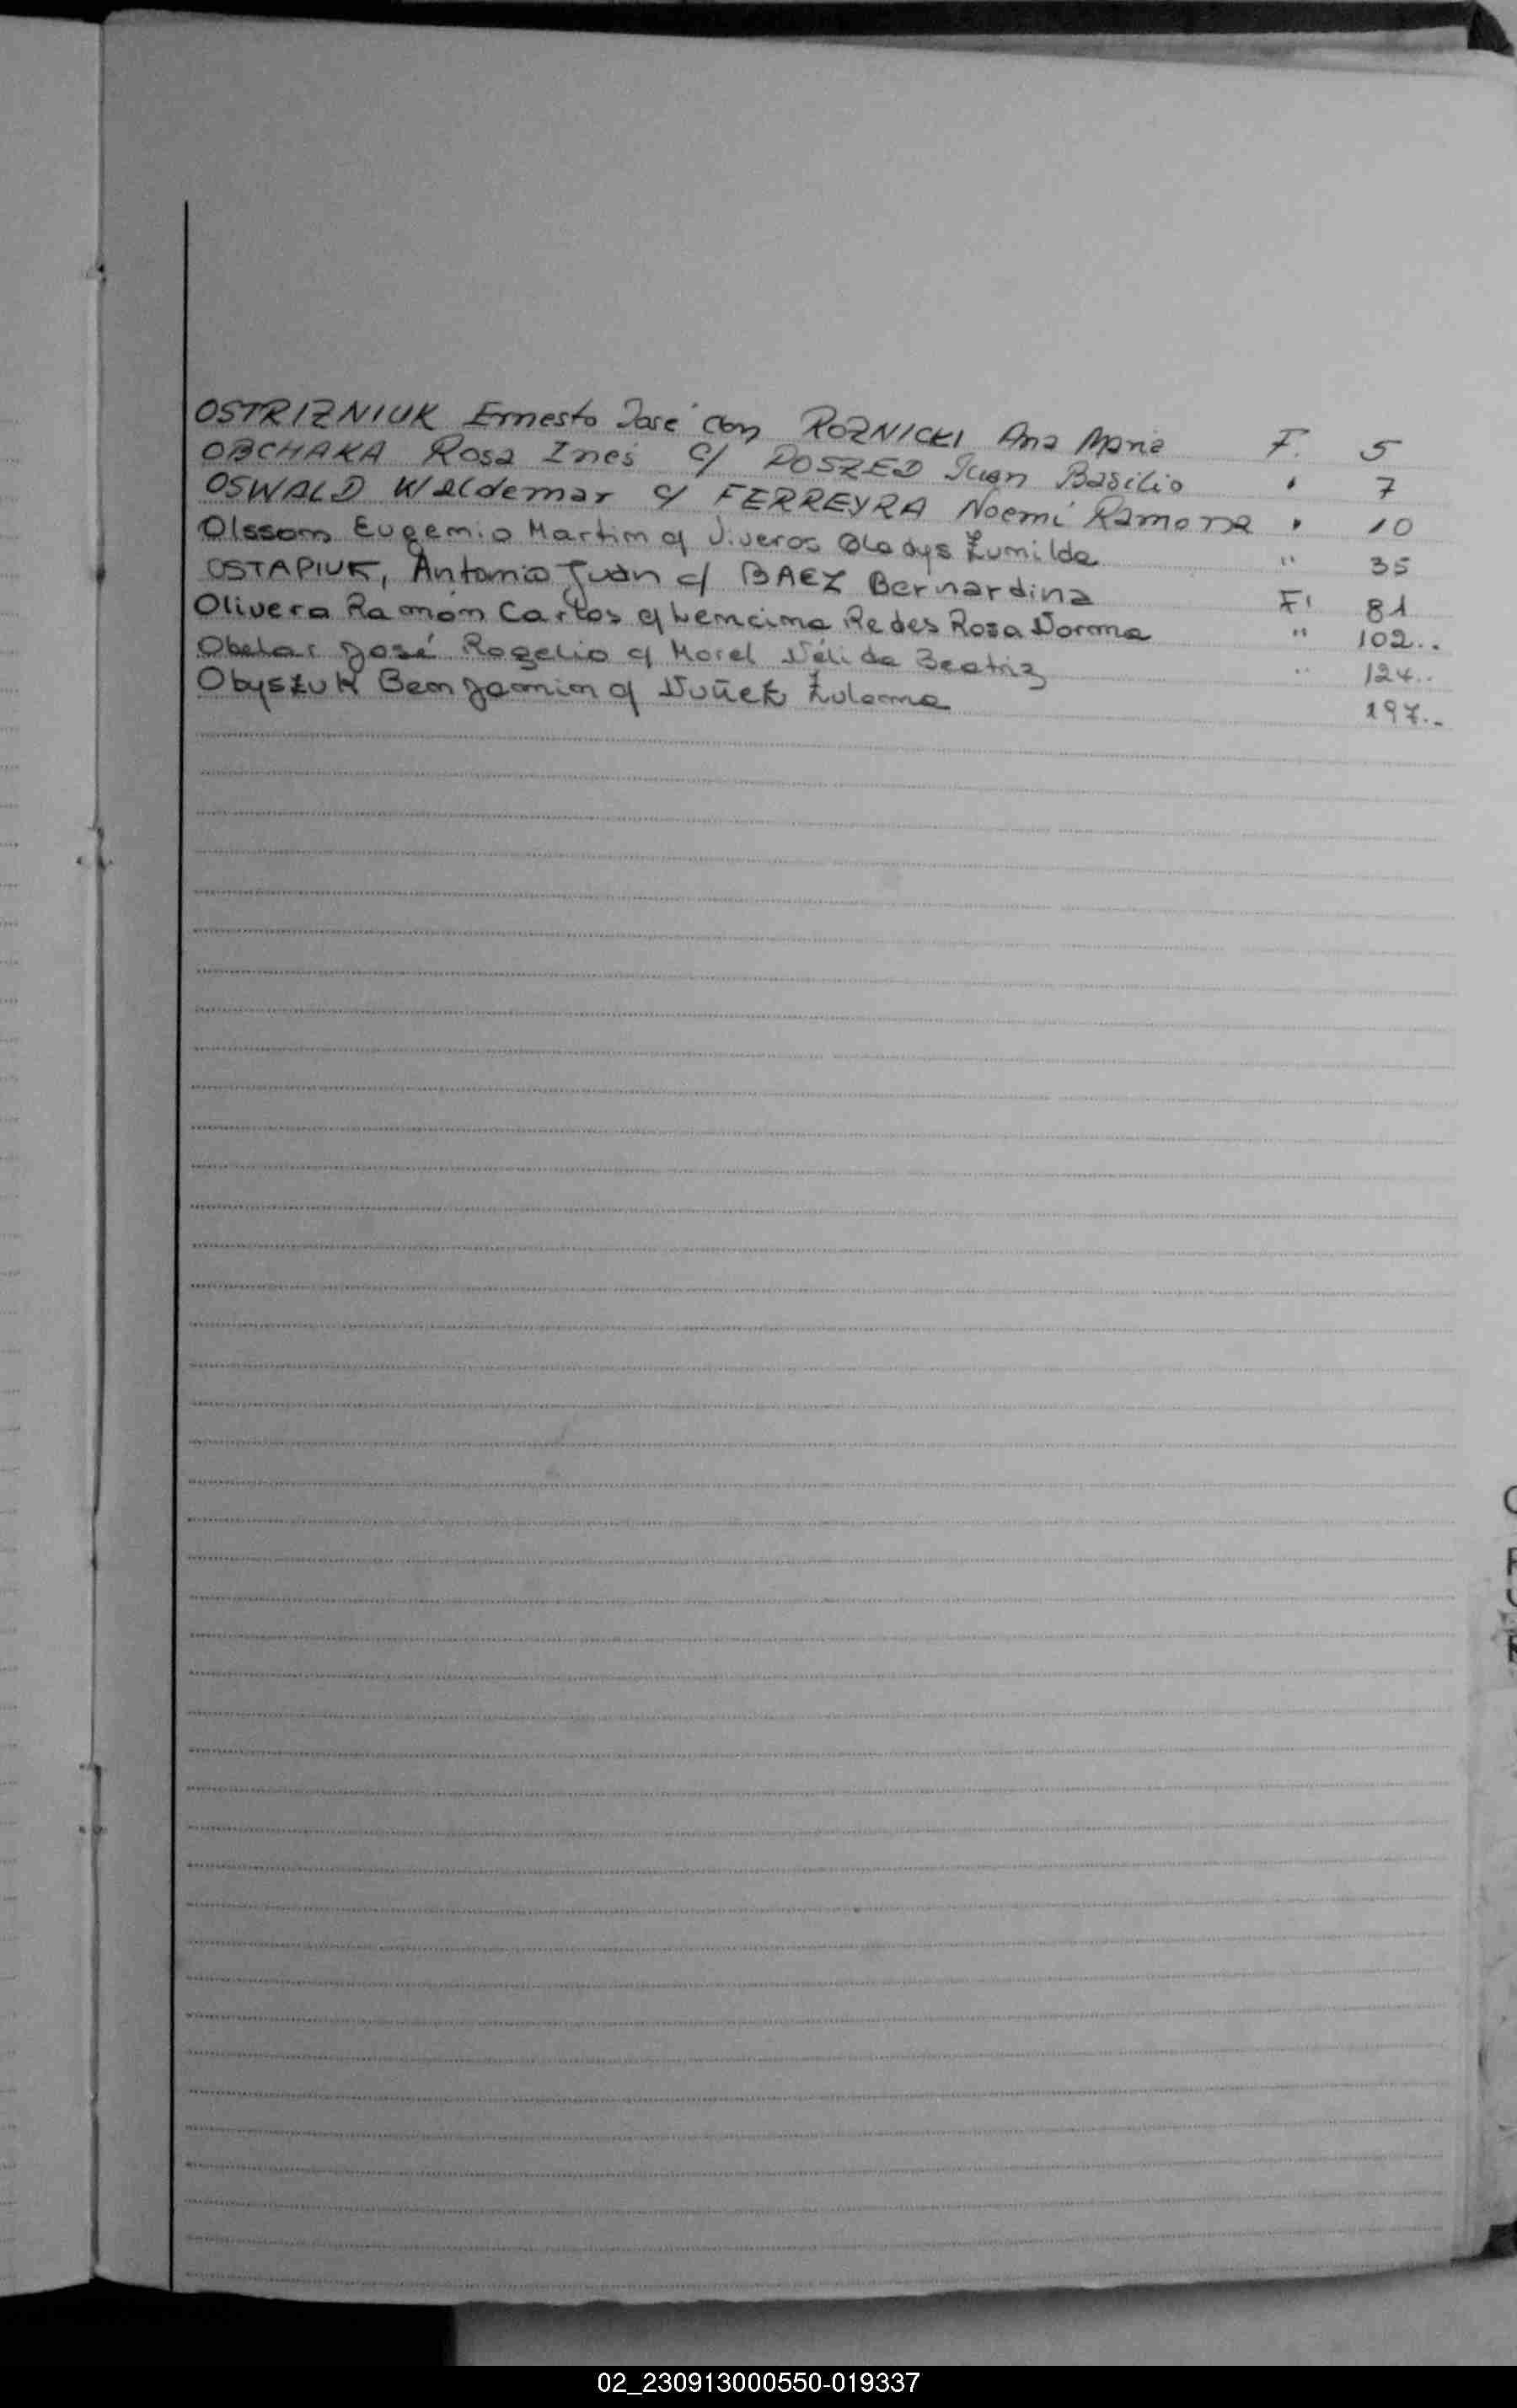 OSTRIZNIUK Ernesto José con ROZNICKI Ana Maria F. 5
OBCHAKA Rosa Ines c/ DOSZED Juan Basilio " 7
OSWALD Waldemar c/ FERREYRA Noemí Ramona " 10
Olsson Eugenio Martin c/ Viveros Gladys Zunilda " 35
OSTAPIUK, Antonio Juan c/ BAEZ Bernardina F' 81
Olivera Ramón Carlos c/ Lencina Redes Rosa Norma " 102..
Obelar José Rogelio c/ Morel Nélida Beatriz " 124..
Obyszuk Benjamin c/ Nuñez Zulema 197..
02_230913000550-019337